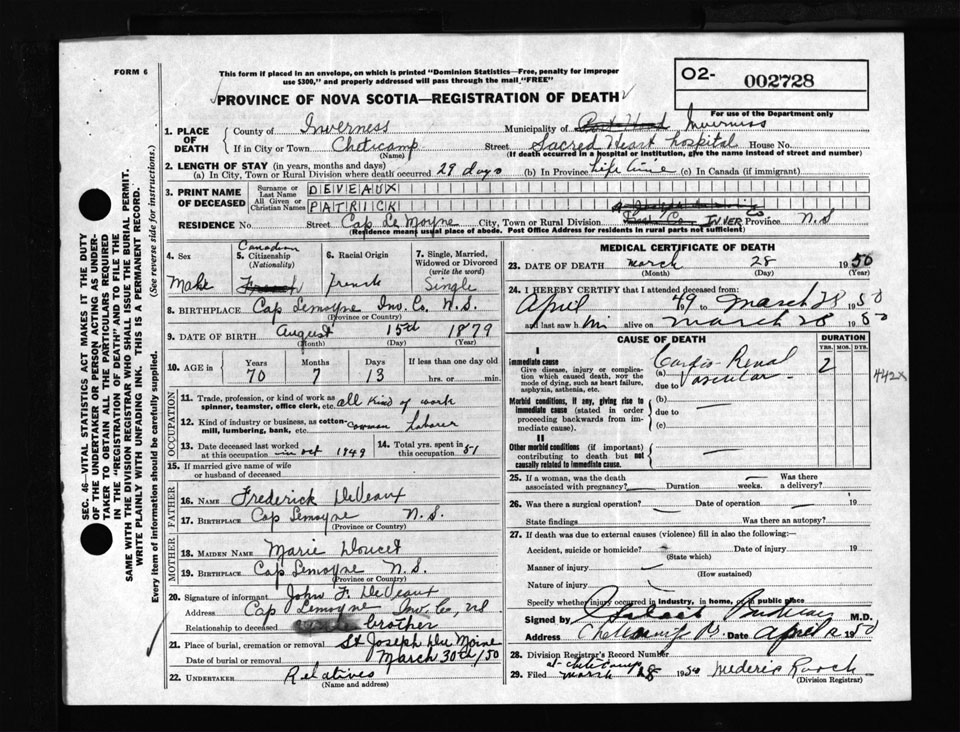 FORM 6
This form if placed in an envelope, on which is printed "Dominion Statistics—Free, penalty for improper
use $300," and properly addressed will pass through the mail "FREE"
PROVINCE OF NOVA SCOTIA—REGISTRATION OF DEATH
O2- 002728
For use of the Department only
1. PLACE OF DEATH
County of Inverness Municipality of Inverness
If in City or Town Cheticamp Street Sacred Heart Hospital House No.
(Name) (If death occurred in a hospital or institution, give the name instead of street and number)
2. LENGTH OF STAY (in years, months and days)
(a) In City, Town or Rural Division where death occurred 29 days (b) In Province Life time (c) In Canada (if immigrant)
3. PRINT NAME OF DECEASED
Surname or Last Name DEVEAUX
All Given or Christian Names PATRICK
RESIDENCE No. Street Cap Le Moyne City, Town or Rural Division INVER Co Province N.S
(Residence means usual place of abode. Post Office Address for residents in rural parts not sufficient)
4. Sex
Male
5. Citizenship
(Nationality)
Canadian
6. Racial Origin
French
7. Single, Married, Widowed or Divorced
(write the word)
Single
8. BIRTHPLACE Cap Lemoyne Inv. Co. N.S.
(Province or Country)
9. DATE OF BIRTH August 15th 1879
(Month) (Day) (Year)
10. AGE in
Years Months Days If less than one day old
70 7 13 hrs. or min.
OCCUPATION
11. Trade, profession, or kind of work as
spinner, teamster, office clerk, etc. all kind of work
12. Kind of industry or business, as cotten-
mill, lumbering, bank, etc. common Laborer
13. Date deceased last worked
at this occupation in oct 1949
14. Total yrs. spent in
this occupation 51
15. If married give name of wife
or husband of deceased
FATHER
16. NAME Frederick DeVeaux
17. BIRTHPLACE Cap Lemoyne N.S.
(Province or Country)
MOTHER
18. MAIDEN NAME Marie Doucet
19. BIRTHPLACE Cap Lemoyne N.S.
(Province or Country)
20. Signature of informant John F. DeVeaux
Address Cap Lemoyne Inv. Co,
Relationship to deceased brother
21. Place of burial, cremation or removal St Joseph Du Moine
Date of burial or removal March 30th/50
22. UNDERTAKER Relatives
(Name and address)
MEDICAL CERTIFICATE OF DEATH
23. DATE OF DEATH March 28 1950
(Month) (Day) (Year)
24. I HEREBY CERTIFY that I attended deceased from:
April 49 to March 28 1950
and last saw him alive on March 28 1950
CAUSE OF DEATH
DURATION
YRS. MOS. DYS.
I
Immediate cause
Give disease, injury or complica-
tion which caused death, not the
mode of dying, such as heart failure,
asphyxia, asthenia, etc.
(a) Cardio-Renal
due to Vascular
2
442x
Morbid conditions, if any, giving rise to
immediate cause (stated in order
proceeding backwards from im-
mediate cause).
(b)
due to
(c)
II
Other morbid conditions (if important)
contributing to death but not
causally related to immediate cause.
25. If a woman, was the death
associated with pregnancy? Duration weeks. Was there
a delivery?
26. Was there a surgical operation? Date of operation 19
State findings Was there an autopsy?
27. If death was due to external causes (violence) fill in also the following:
Accident, suicide or homicide? Date of injury 19
(State which)
Manner of injury
(How sustained)
Nature of injury
Specify whether injury occurred in Industry, in home, or in public place
Signed by M.D.
Address Date April 1950
28. Division Registrar's Record Number
at Cheticamp
29. Filed March 28 1950
(Division Registrar)
SEC. 46—VITAL STATISTICS ACT MAKES IT THE DUTY
OF THE UNDERTAKER OR PERSON ACTING AS UNDER-
TAKER TO OBTAIN ALL THE PARTICULARS REQUIRED
IN THE "REGISTRATION OF DEATH" AND TO FILE THE
SAME WITH THE DIVISION REGISTRAR WHO SHALL ISSUE THE BURIAL PERMIT.
WRITE PLAINLY WITH UNFADING INK. THIS IS A PERMANENT RECORD.
Every item of information should be carefully supplied. (See reverse side for instructions.)